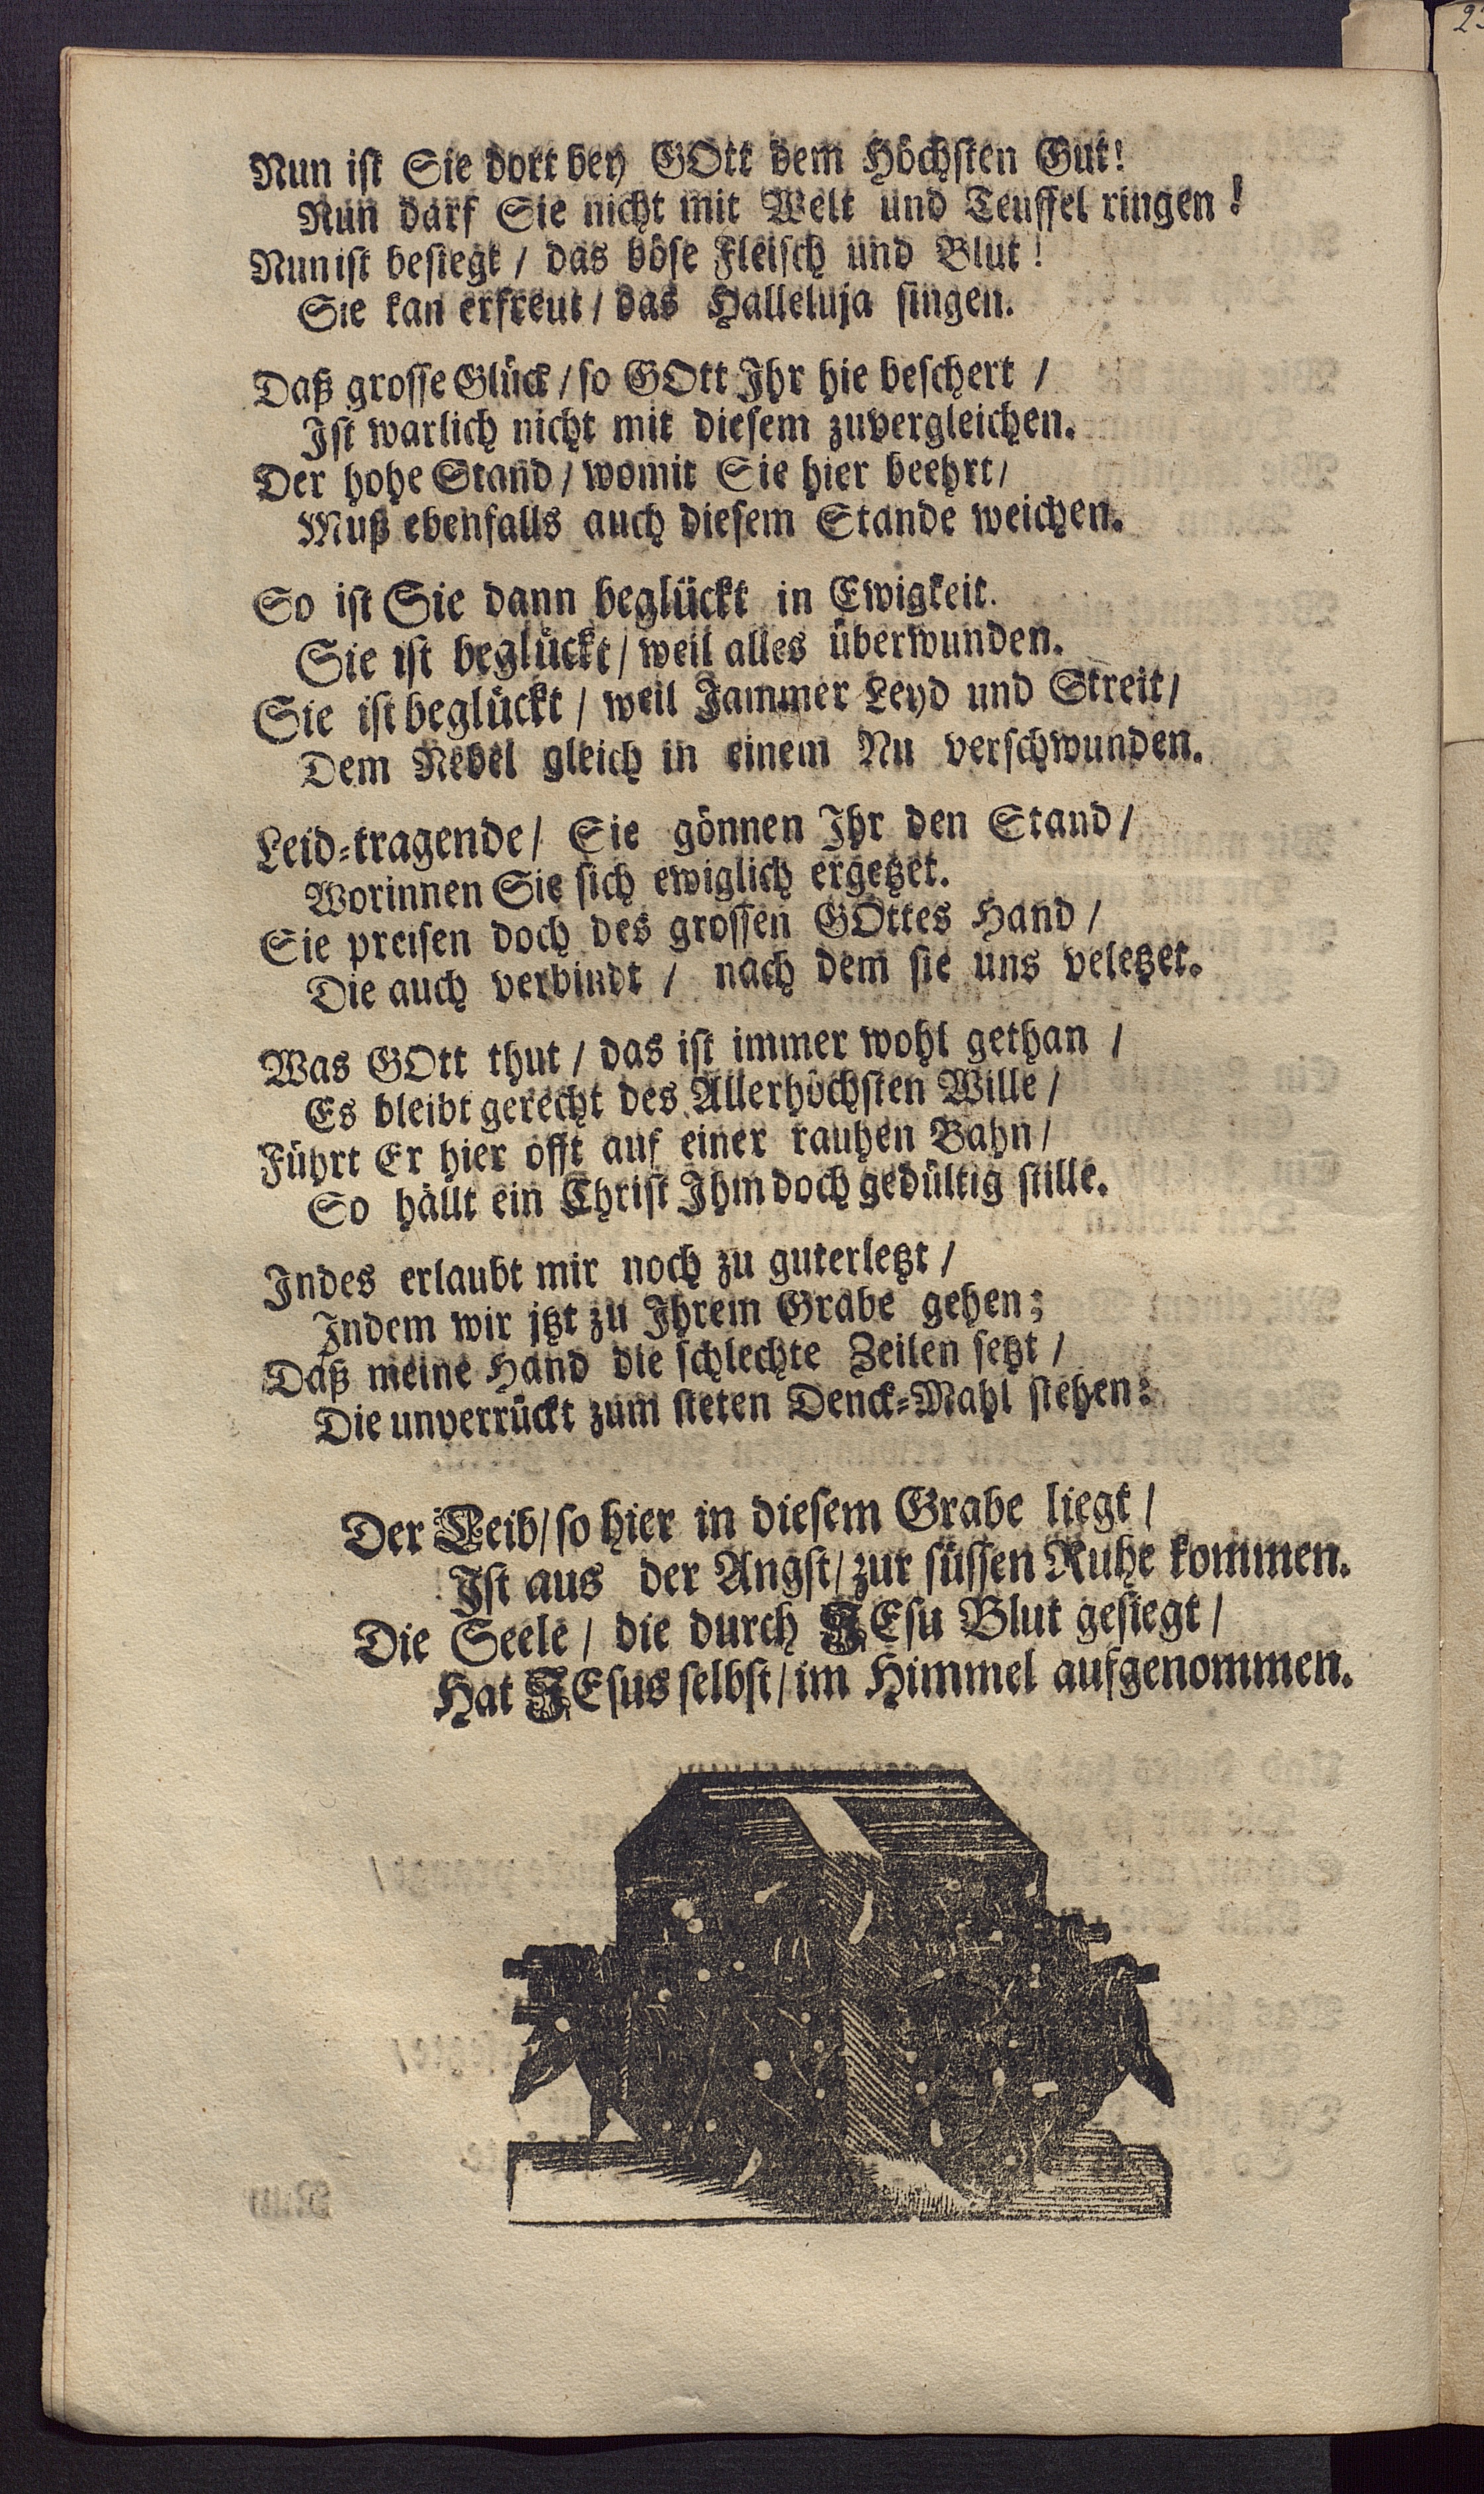 Nun ist Sie dort bey GOtt dem Höchsten Gut!
Nun darf Sie nicht mit Welt und Teuffel ringen!
Nun ist besiegt / das böse Fleisch und Blut!
Sie kan erfreut / das Halleluja singen.
Daß grosse Glück / so GOtt Ihr hie beschert /
Ist warlich nicht mit diesem zuvergleichen.
Der hohe Stand / womit Sie hier beehrt /
Muß ebenfalls auch diesem Stande weichen.
So ist Sie dann beglückt in Ewigkeit.
Sie ist beglückt / weil alles überwunden.
Sie ist beglückt / weil Jammer Leyd und Streit /
Dem Nebel gleich in einem Nu verschwunden.
Leid-tragende / Sie gönnen Ihr den Stand /
Worinnen Sie sich ewiglich ergetzet.
Sie preisen doch des grossen GOttes Hand /
Die auch verbindt / nach dem sie uns veletzet.
Was GOtt thut / das ist immer wohl gethan /
Es bleibt gerecht des Allerhöchsten Wille /
Führt Er hier offt auf einer rauhen Bahn /
So hällt ein Christ Ihm doch gedültig stille.
Indes erlaubt mir noch zu guterletzt /
Indem wir jtzt zu Ihrem Grabe gehen;
Daß meine Hand die schlechte Zeilen setzt /
Die unverrückt zum steten Denck-Mahl stehen:
Der Leib / so hier in diesem Grabe liegt /
Ist aus der Angst / zur süssen Ruhe kommen.
Die Seele / die durch JEsu Blut gesiegt /
Hat JEsus selbst / im Himmel aufgenommen.